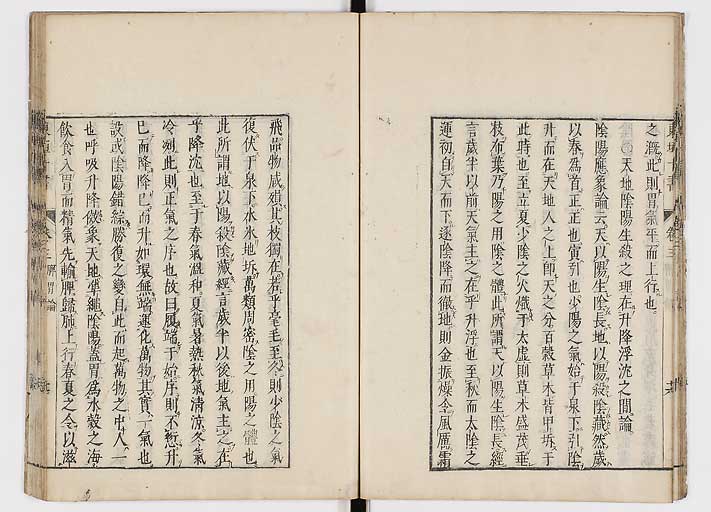 之滋此則胃氣平而上行也
天地陰陽生殺之理在升降浮沈之間論
陰陽應象論云天以陽生陰長地以陽殺陰藏然歲
以春為首正正也寅引也少陽之氣始于泉下引陰
升而在天地人之上即天之分百穀草木皆甲坼于
此時也至立夏少陰之火熾于太虛則草木盛茂垂
枝布葉乃陽之用陰之體此所謂天以陽生陰長經
言歲半以前天氣主之在乎升浮也至秋而太陰之
運初自天而下逐陰降而徹地則金振燥令風厲霜
飛品物咸殞其枝獨在若乎毫毛至冬則少陰之氣
復伏于泉下水冰地坼萬類周密陰之用陽之體也
此所謂地以陽殺陰藏經言歲半以後地氣主之在
乎降沈也至于春氣溫和夏氣暑熱秋氣清涼冬氣
冷冽此則正氣之序也故曰履端于始序則不愆升
已而降降已而升如環無端運化萬物其實一氣也
設或陰陽錯綜勝復之變自此而起萬物之中人一
也呼吸升降傚象天地準繩陰陽蓋胃為水穀之海
飲食入胃而精氣先輸脾歸肺上行春夏之令以滋
脾胃論